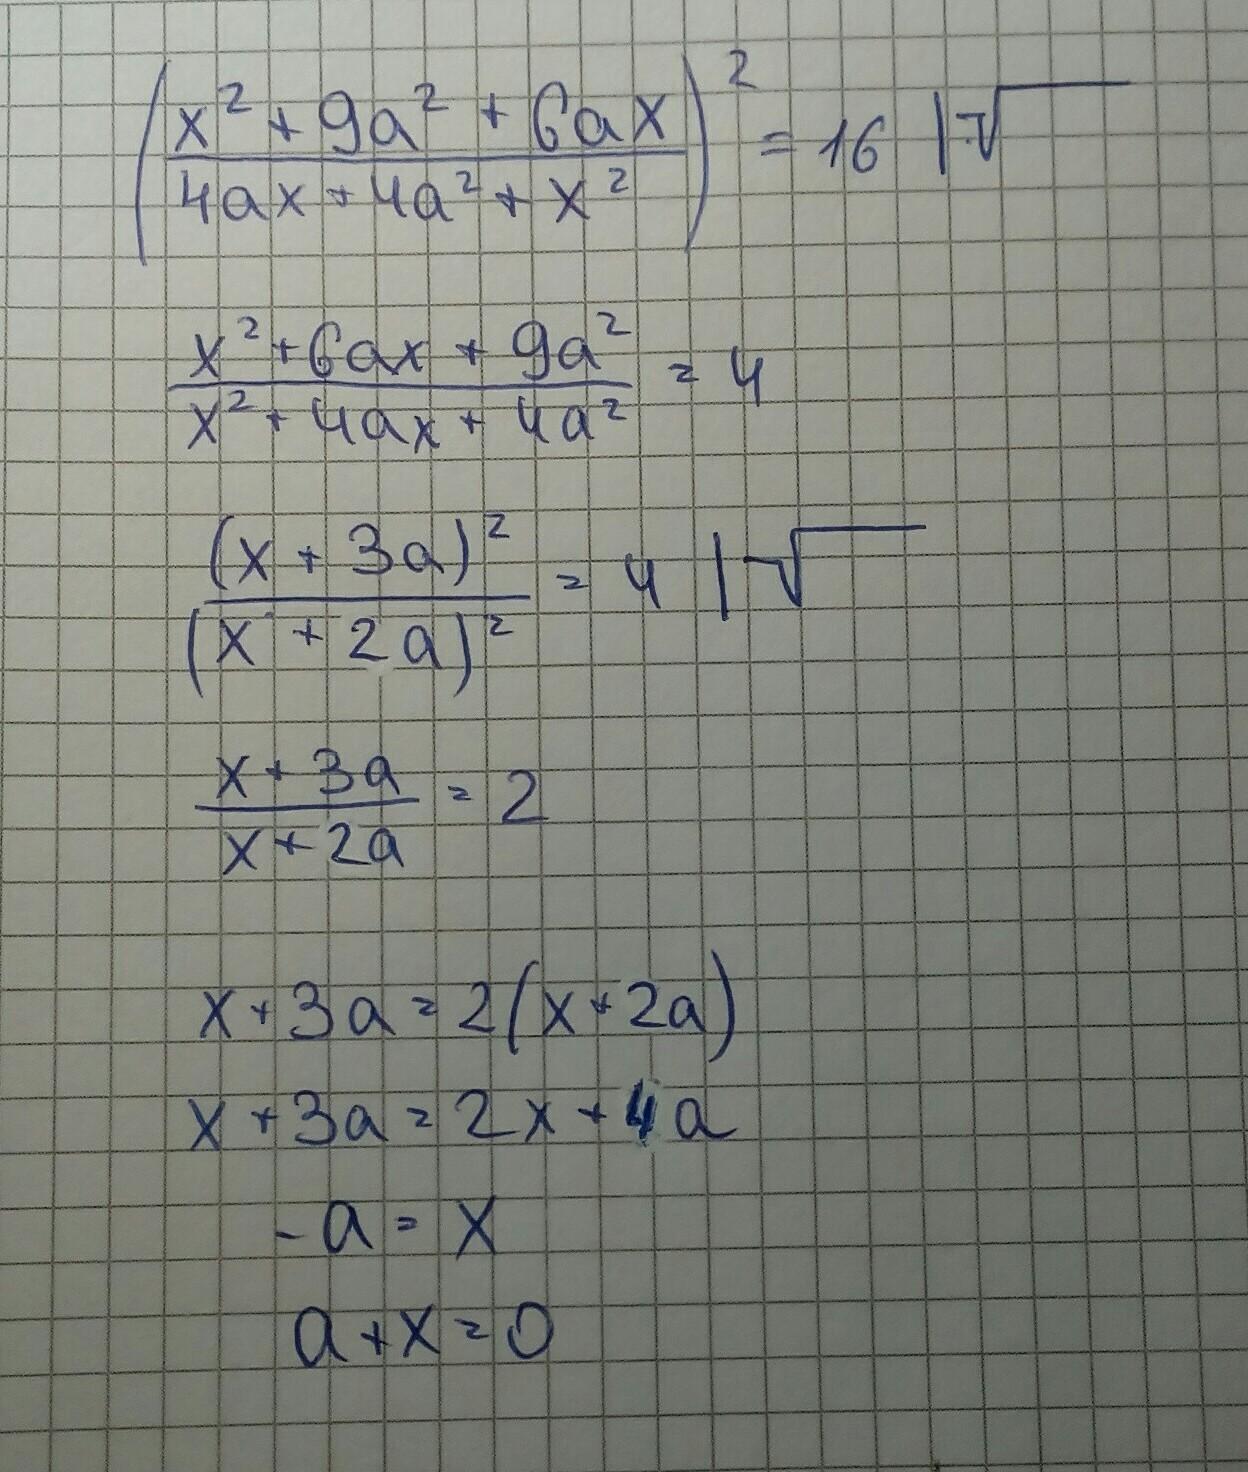 (x² + 9a² + 6ax / 4ax + 4a² + x²)² = 16 | √
x² + 6ax + 9a² / x² + 4ax + 4a² = 4
(x + 3a)² / (x + 2a)² = 4 | √
x + 3a / x + 2a = 2
x + 3a = 2(x + 2a)
x + 3a = 2x + 4a
-a = x
a + x = 0